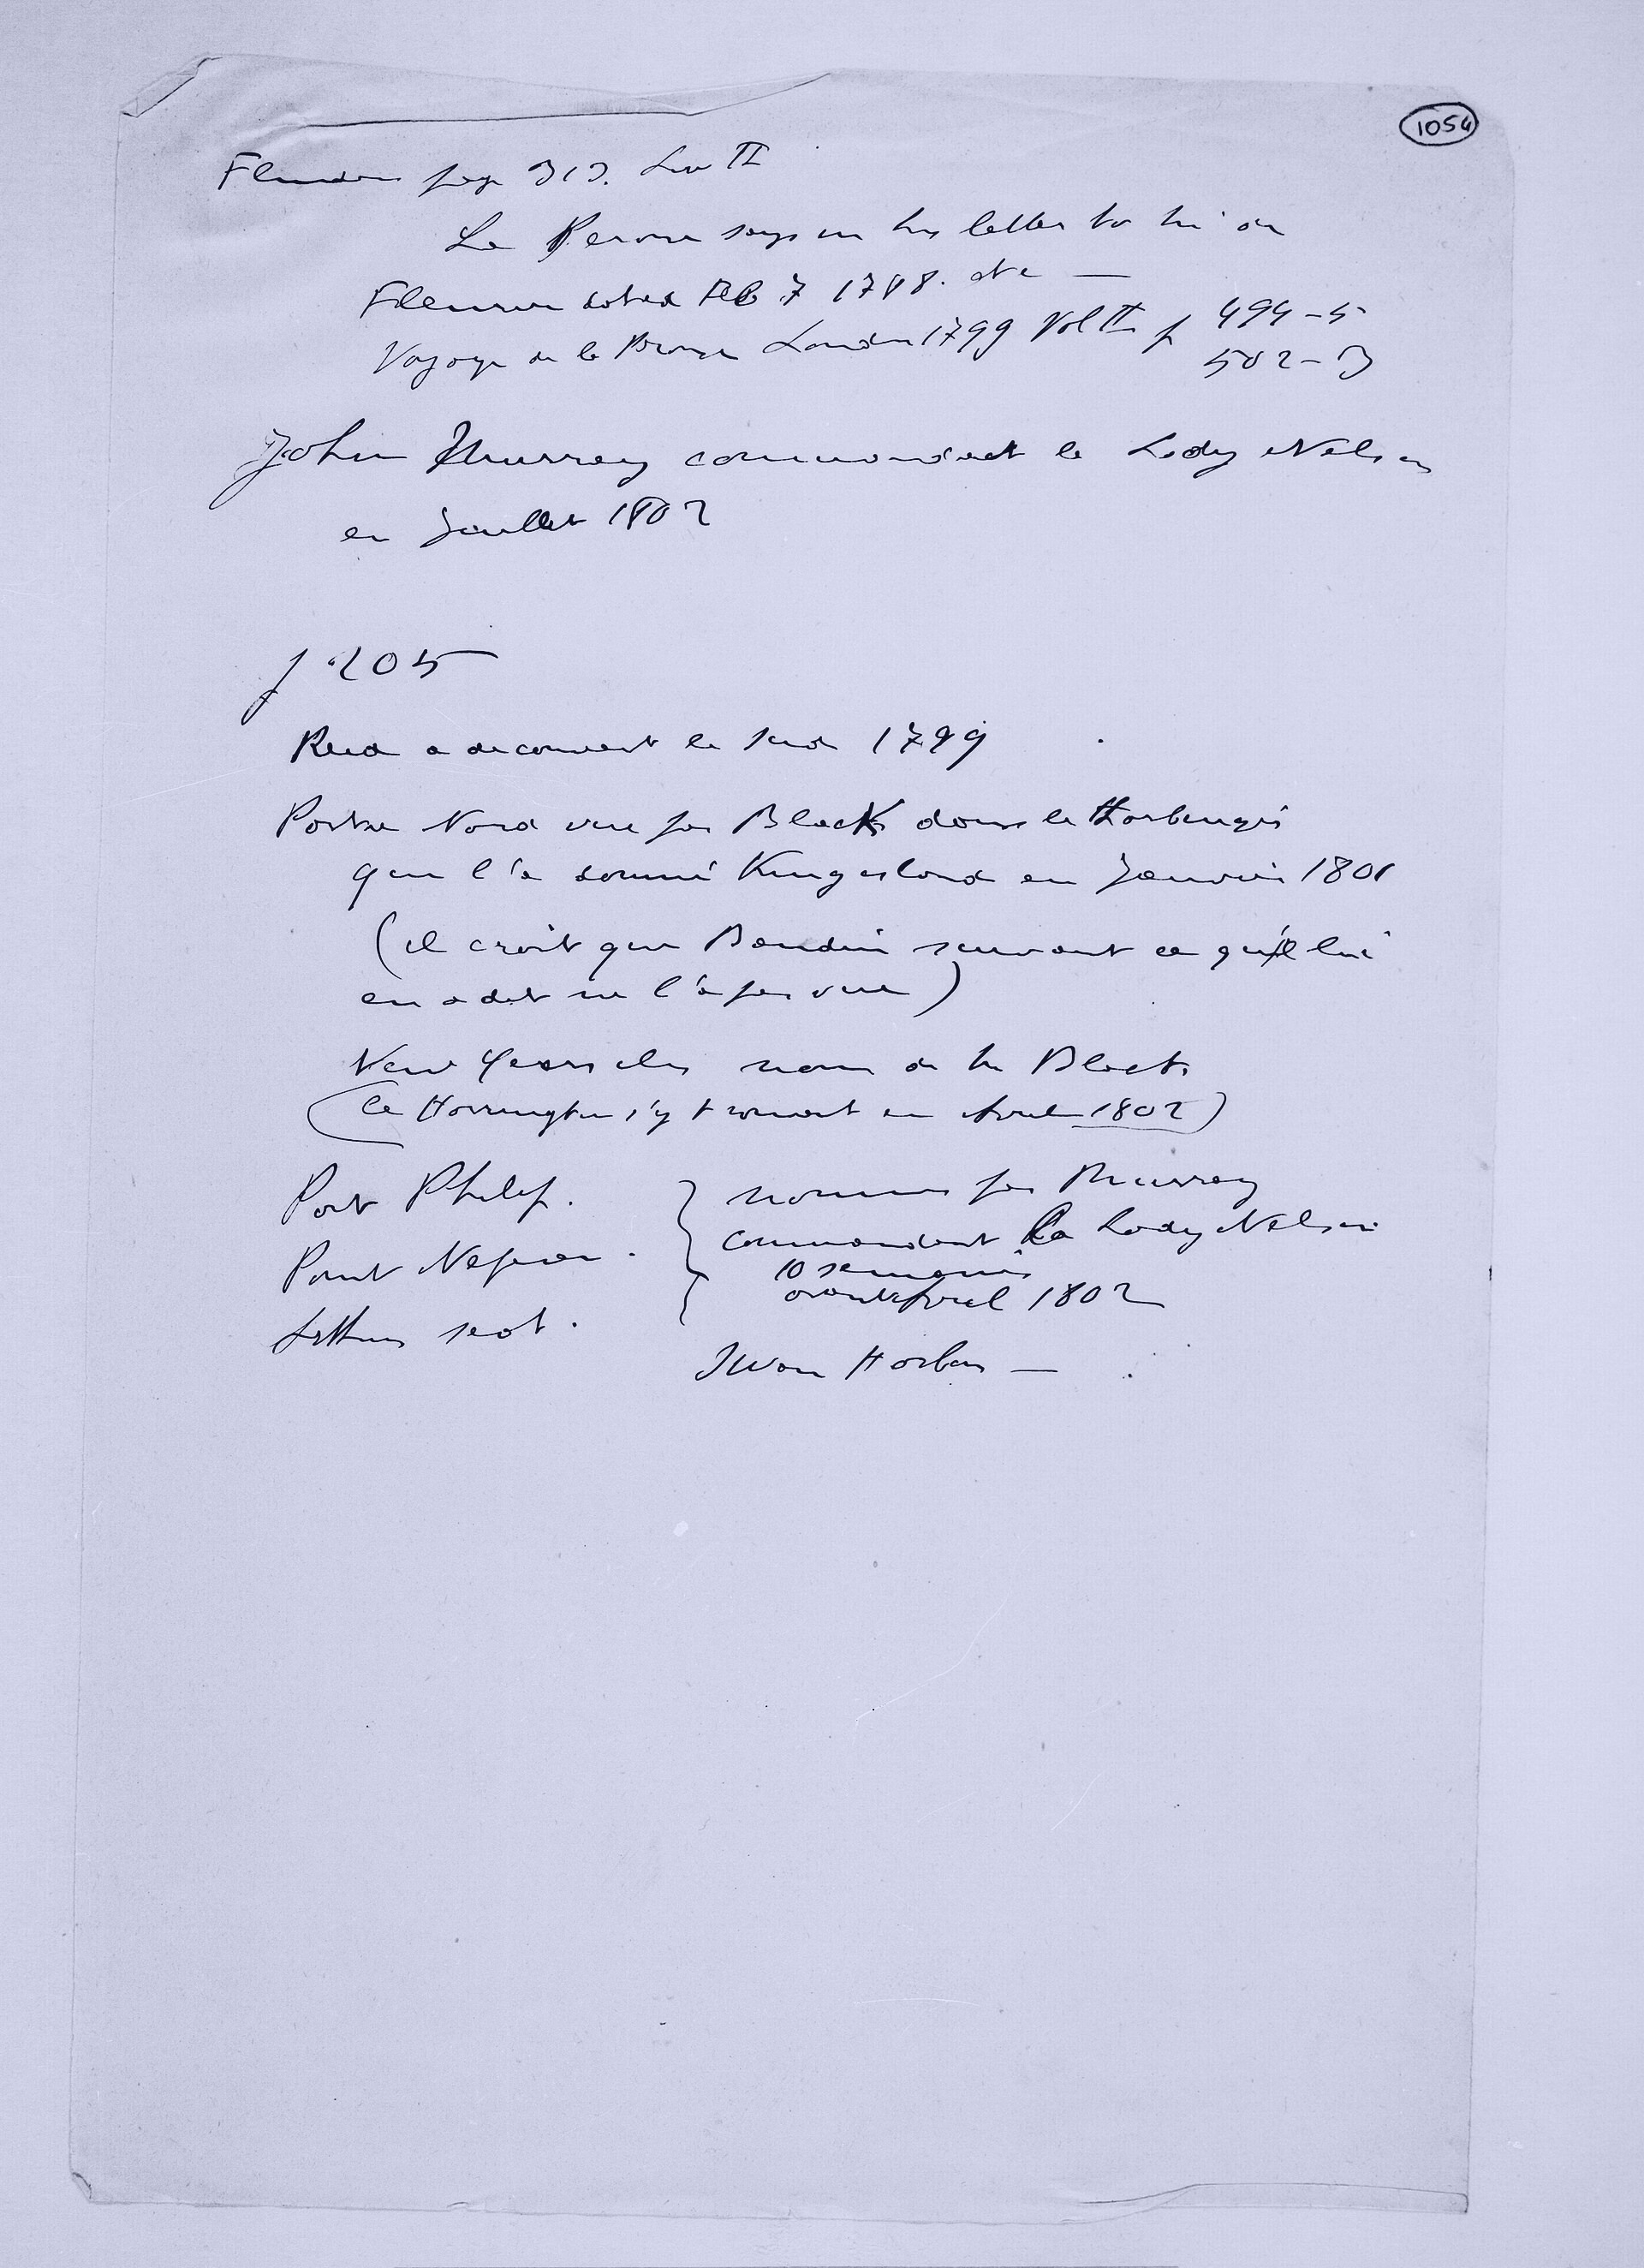 1054
Flinders page 313. Liv II
La Perouse says in his letter to M de
Fleurieu dated Feb 7 1788. etc —
Voyage de la Perouse London 1799 Vol II p 494-5
502-3
John Murray commandant le Lady Nelson
en Juillet 1802
p 205
Reed a decouvert le sud 1799
Partie Nord vue par Black dans le Harbinger
qui l'a nommé King island en Janvier 1801
(il croit que Baudin suivant ce qu'il lui
en a dit ne l'a pas vue)
New Years isles nom de Mr Black
(le Harrington s'y trouvait en Avril 1802)
Port Philip. nommes par Murray
Point Nepean. commandant le Lady Nelson
10 semaines
avant Avril 1802
Arthurs seat.
Swan Harbour —